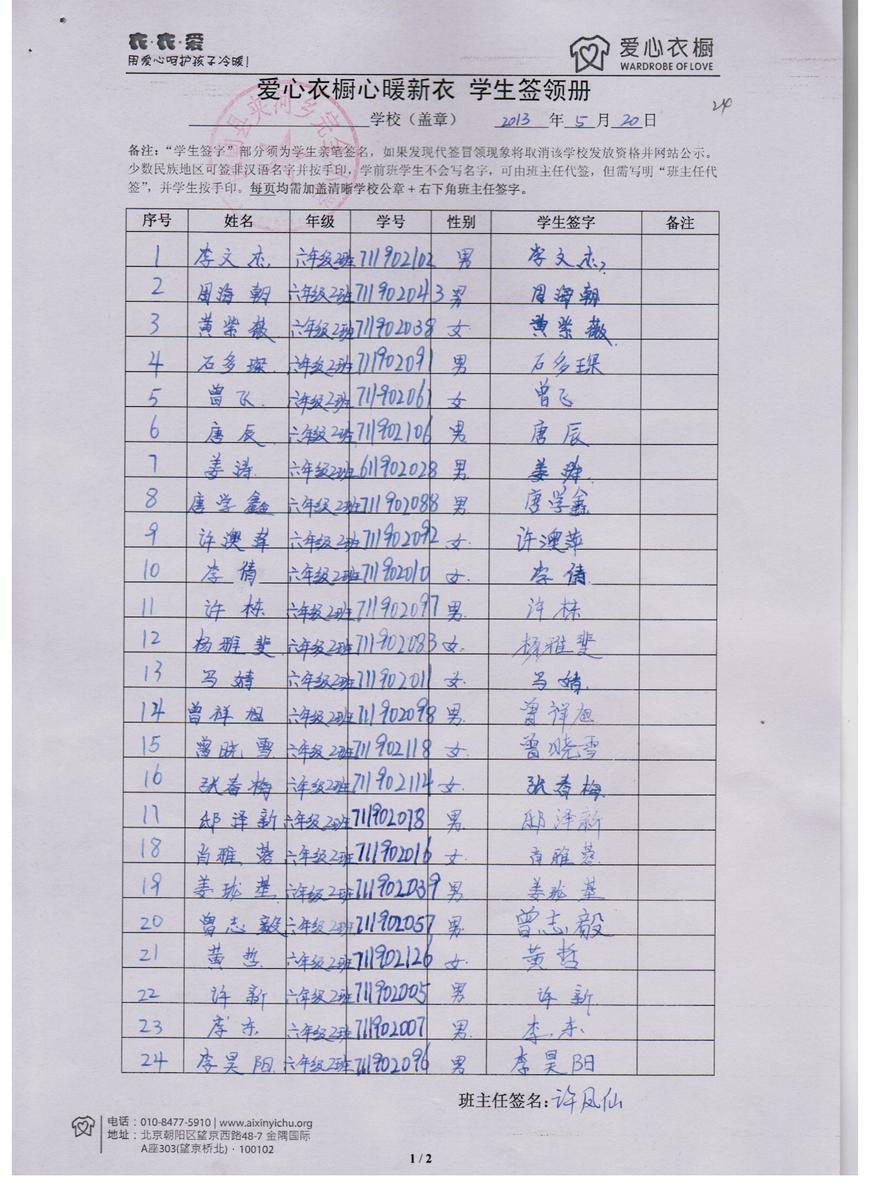 衣·衣·爱
用爱心呵护孩子冷暖!
爱心衣橱
WARDROBE OF LOVE
爱心衣橱心暖新衣 学生签领册
24
学校（盖章） 2013 年 5 月 20 日
备注：“学生签字”部分须为学生亲笔签名，如果发现代签冒领现象将取消该学校发放资格并网站公示。
少数民族地区可签非汉语名字并按手印。学前班学生不会写名字，可由班主任代签，但需写明“班主任代
签”，并学生按手印。每页均需加盖清晰学校公章＋右下角班主任签字。
序号 姓名 年级 学号 性别 学生签字 备注
1 李文杰 六年级2班 711902102 男 李文杰
2 周海朝 六年级2班 711902043 男 周海朝
3 黄紫薇 六年级2班 711902038 女 黄紫薇
4 石多琛 六年级2班 711902091 男 石多琛
5 曾飞 六年级2班 711902061 女 曾飞
6 唐辰 六年级2班 711902106 男 唐辰
7 姜涛 六年级2班 611902028 男 姜涛
8 唐学鑫 六年级2班 711902088 男 唐学鑫
9 许澳苹 六年级2班 711902092 女 许澳苹
10 李倩 六年级2班 711902010 女 李倩
11 许栋 六年级2班 711902097 男 许栋
12 杨雅斐 六年级2班 711902083 女 杨雅斐
13 马婧 六年级2班 711902011 女 马婧
14 曾祥旭 六年级2班 711902098 男 曾祥旭
15 曾晓雪 六年级2班 711902118 女 曾晓雪
16 张春梅 六年级2班 711902114 女 张春梅
17 邸泽新 六年级2班 711902078 男 邸泽新
18 肖雅蓉 六年级2班 711902016 女 肖雅蓉
19 姜珑基 六年级2班 711902039 男 姜珑基
20 曾志毅 六年级2班 711902057 男 曾志毅
21 黄哲 六年级2班 711902126 女 黄哲
22 许新 六年级2班 711902005 男 许新
23 李东 六年级2班 711902007 男 李东
24 李昊阳 六年级2班 711902096 男 李昊阳
班主任签名：许凤仙
电话：010-8477-5910 | www.aixinyichu.org
地址：北京朝阳区望京西路48-7 金隅国际
A座303(望京桥北)·100102
1 / 2